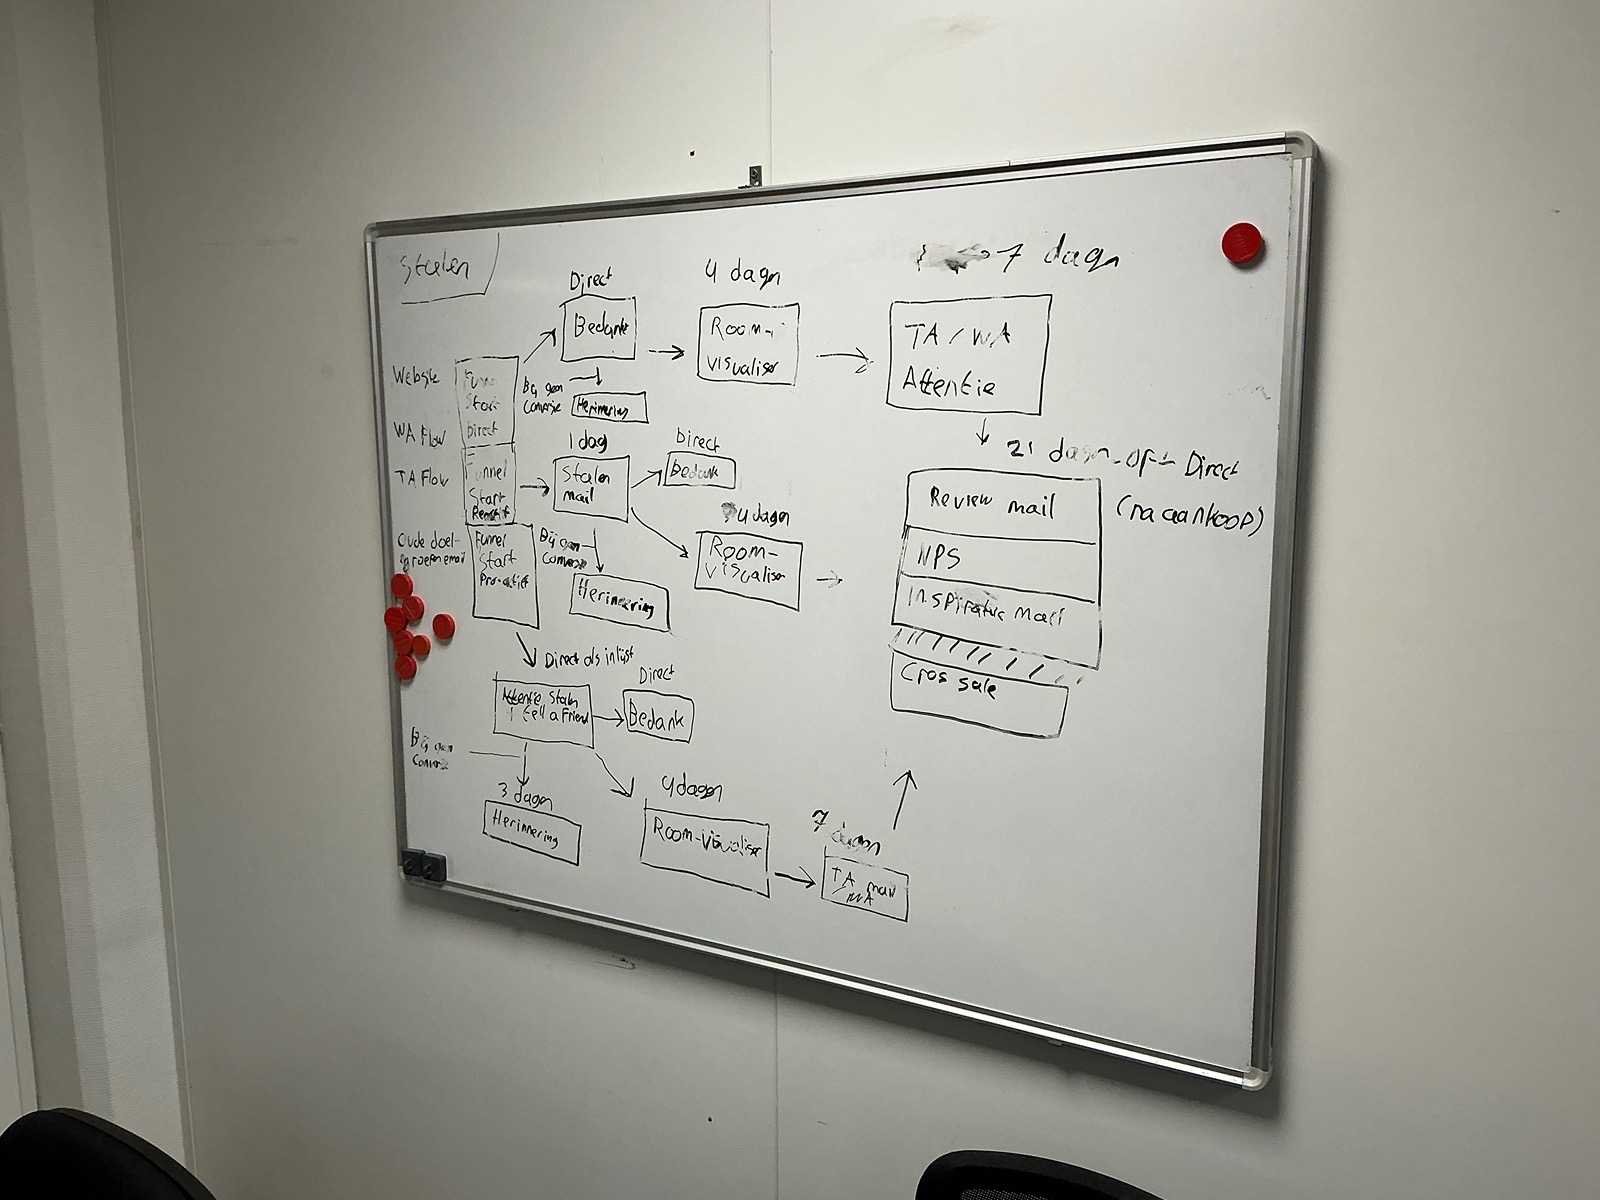 Stalen
Direct
Bedank
4 dagn
Room-
visualiser
7 dagn
TA / WA
Attentie
Website
WA Flow
TA Flow
Oude doel-
groepen email
Funnel
Start
Direct
Bij geen
Conversie
Herinnering
Funnel
Start
1 dag
Stalen
mail
Direct
Bedank
4 dagn
Room-
visualiser
Bij geen
Conversie
Herinnering
Funnel
Start
Pro-actief
21 dagn Direct
(na aankoop)
Review mail
NPS
Inspiratie mail
Cros sale
Direct als inlijst
Attentie Stalen
tell a Friend
Direct
Bedank
Bij geen
Conversie
3 dagn
Herinnering
4 dagen
Room-visualiser
7 dagn
TA mail
/WA